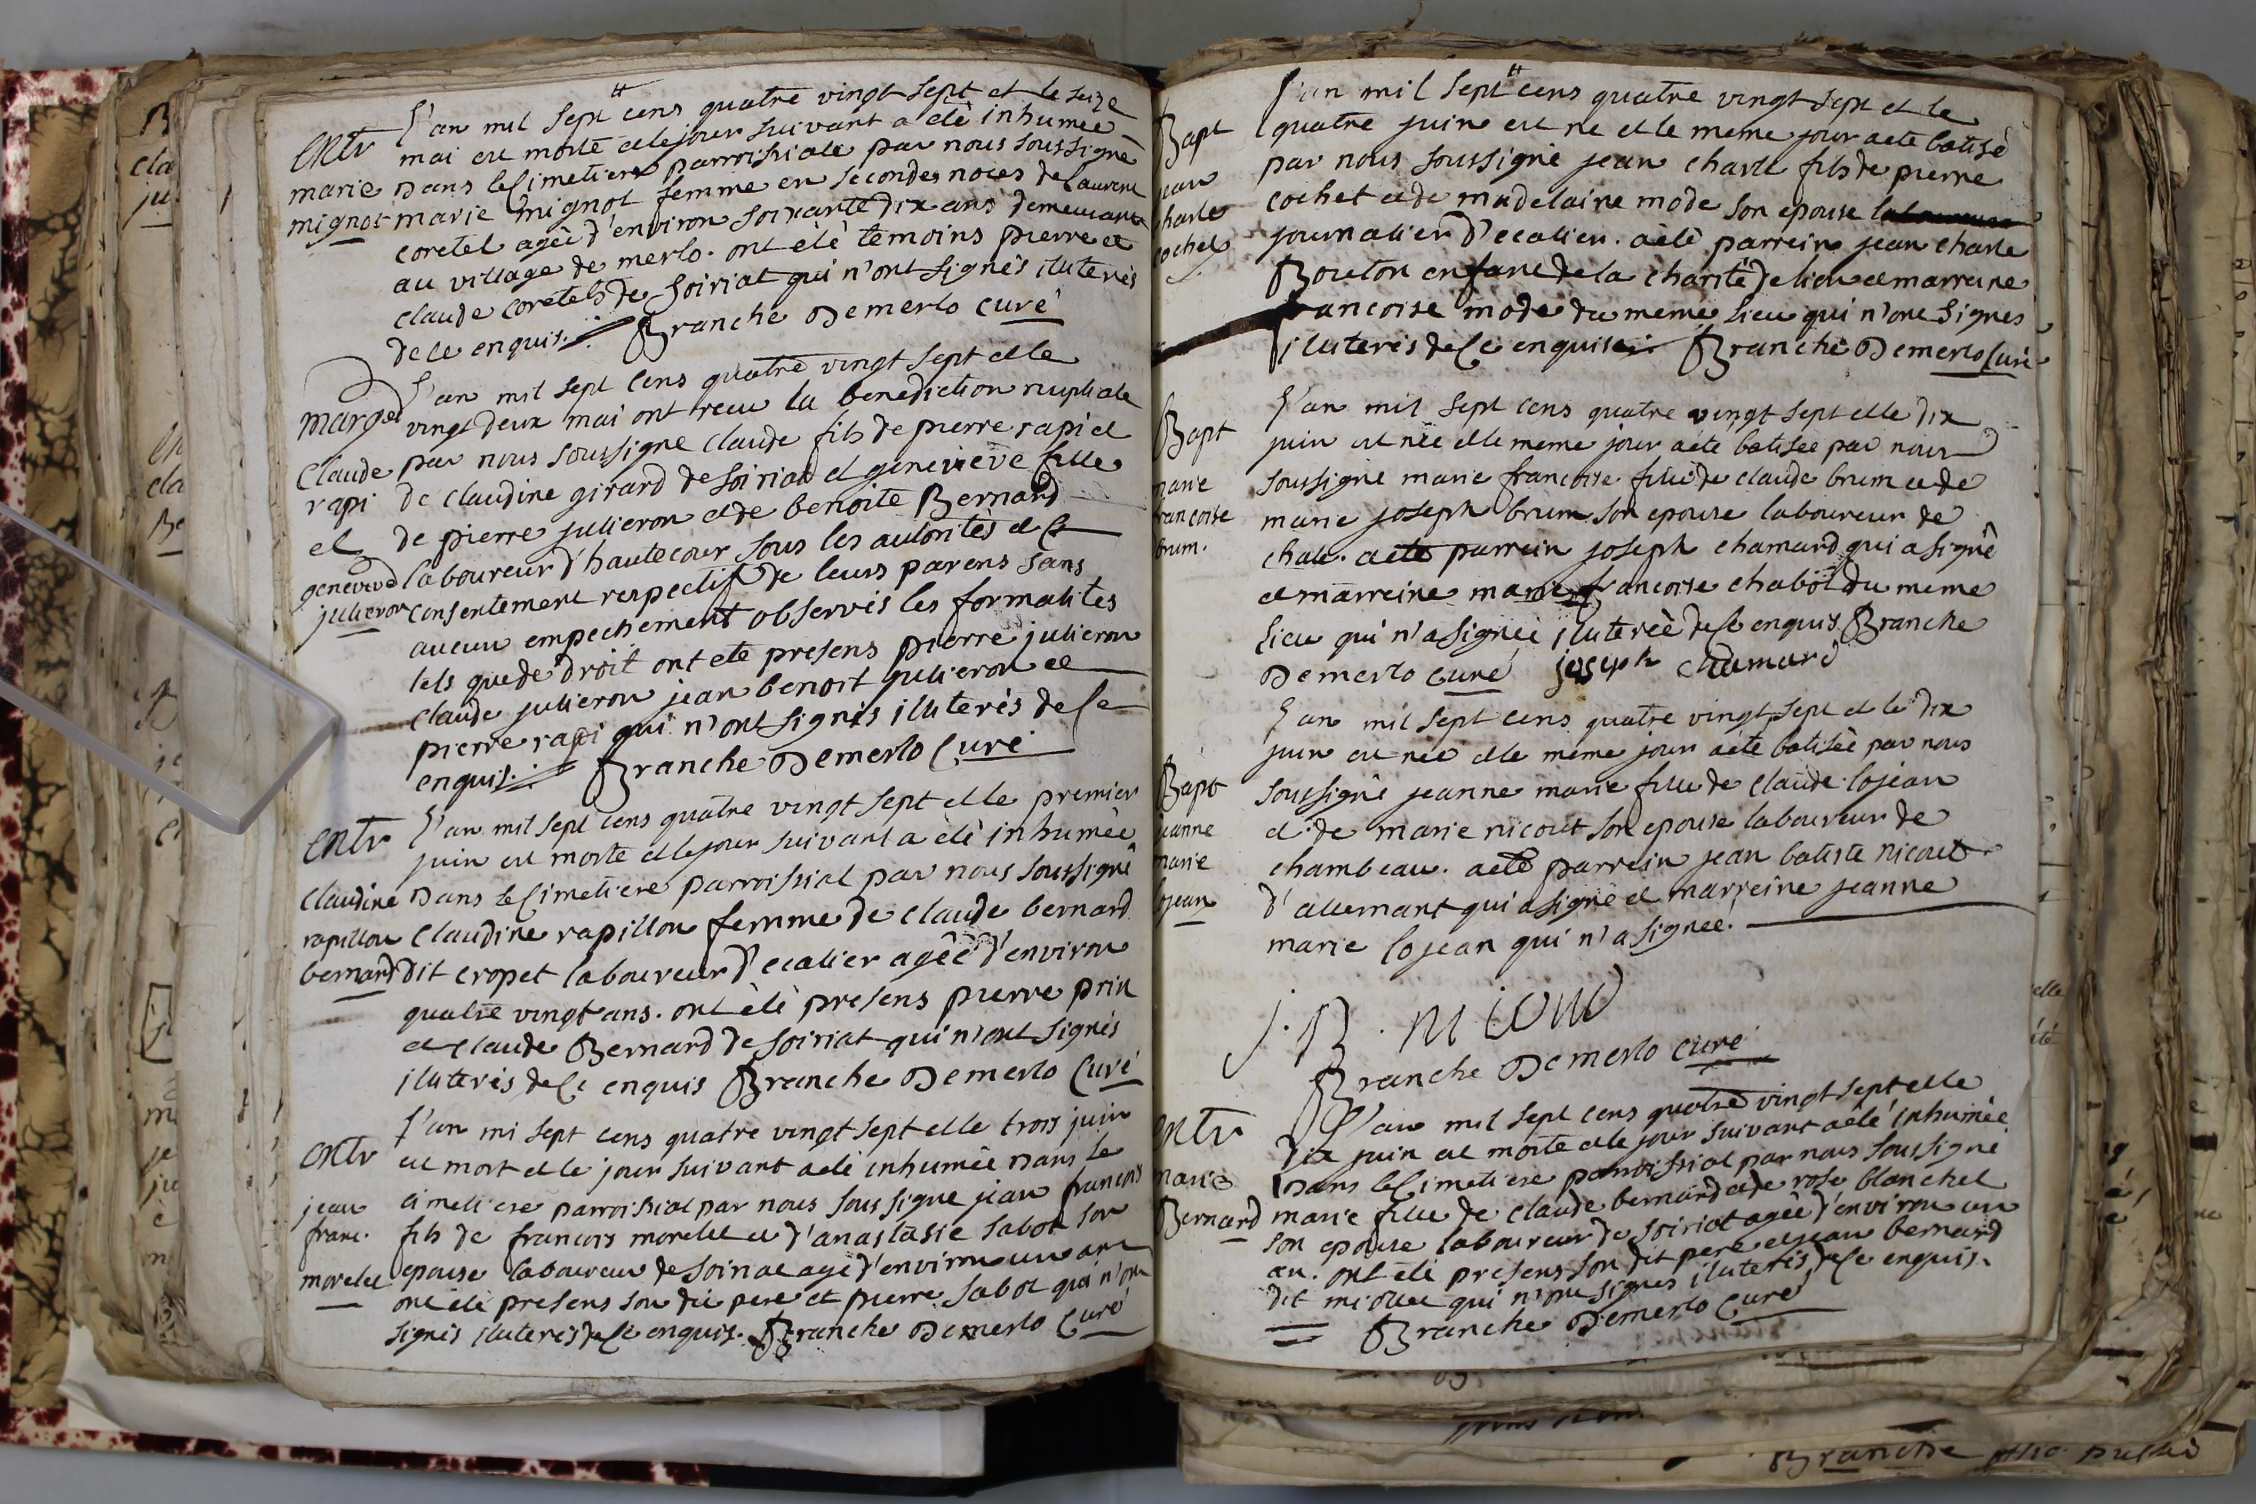 L'an mil sept cens quatre vingt sept et le seize
entr mai est morte et le jour suivant a été inhumée
marie dans le Cimetiere parroissiale par nous soussigné
mignot marie mignot femme en secondes noces de Laurent
coretel agée d'environ soixante dix ans demeurante
au village de merlo. ont été temoins pierre et
claude coretels de soiriat qui n'ont signés illiterés
de ce enquis. Branche Demerlo Curé
L'an mil sept cens quatre vingt sept et le
marge vingt deux mai ont recu la benediction nuptiale
Claude par nous soussigne Claude fils de pierre rapi et
rapi de claudine girard de soiriat et genevieve fille
et de pierre julieron et de benoite Bernard
genevieve laboureur d'hautecour sous les autorités et Ce
julieron consentement respectif de leurs parens sans
aucun empechement observés les formalités
tels que de droit ont ete presens pierre julieron
claude julieron jean benoit julieron et
pierre rapi qui n'ont signés illiterés de Ce
enquis. Branche Demerlo Curé
entr L'an mil sept cens quatre vingt sept et le premier
juin est morte et le jour suivant a été inhumée
claudine Dans le Cimetiere parroissial par nous soussigné
rapillon Claudine rapillon femme de claude bernard
bernard dit cropet laboureur d'ecalier agée d'environ
quatre vingt ans. ont été presens pierre prin
et claude Bernard de soiriat qui n'ont signés
illiterés de Ce enquis Branche Demerlo Curé
L'an mi sept cens quatre vingt sept et le trois juin
entr est mort et le jour suivant a été inhumée Dans le
jean cimetiere parroissial par nous soussigne jean francois
franc. fils de francois morelet et d'anastasie sabot son
morelet epouse laboureur de soiriat agé d'environ un an
ont été presens son dit pere et pierre sabot qui n'ont
signés illiterés de Ce enquis. Branche Demerlo Curé
L'an mil sept cens quatre vingt sept et le
Bapt quatre juin est né et le meme jour a ete batisé
jean par nous soussigné jean charle fils de pierre
charle cochet et de madelaine mode son epouse
cochet journalier d'ecalier. a été parrein jean charle
Bouton enfant de la charité de lion et marreine
francoise mode du meme lieu qui n'ont signés
illiterés de Ce enquise Branche Demerlo Curé
L'an mil sept cens quatre vingt sept et le dix
Bapt juin est née et le meme jour a ete batisée par nous
marie soussigné marie francoise fille de claude brum et de
francoise marie joseph brum son epouse laboureur de
brum. chale. a eté parrein joseph chamard qui a signé
et marreine marie francoise chabot du meme
lieu qui n'a signée illiterée de Ce enquis Branche
Demerlo Curé joseph chamard
L'an mil sept cens quatre vingt sept et le dix
juin est née et le meme jour a eté batisée par nous
Bapt soussigné jeanne marie fille de claude lojean
jeanne et de marie nicout son epouse laboureur de
marie chambeau. a eté parrein jean batiste nicout
lojean d'allemant qui a signé et marreine jeanne
marie lojean qui n'a signée.
J. B.
Branche Demerlo curé
L'an mil sept cens quatre vingt sept et le
entr Dix juin est morte et le jour suivant a été inhumée
marie Dans le Cimetiere parroissial par nous soussigné
Bernard marie fille de claude bernard et de rose blanchet
son epouse laboureur de soiriat agée d'environ un
an. ont été presens son dit pere et jean bernard
dit miollet qui n'ont signés illiterés de Ce enquis.
Branche Demerlo Curé